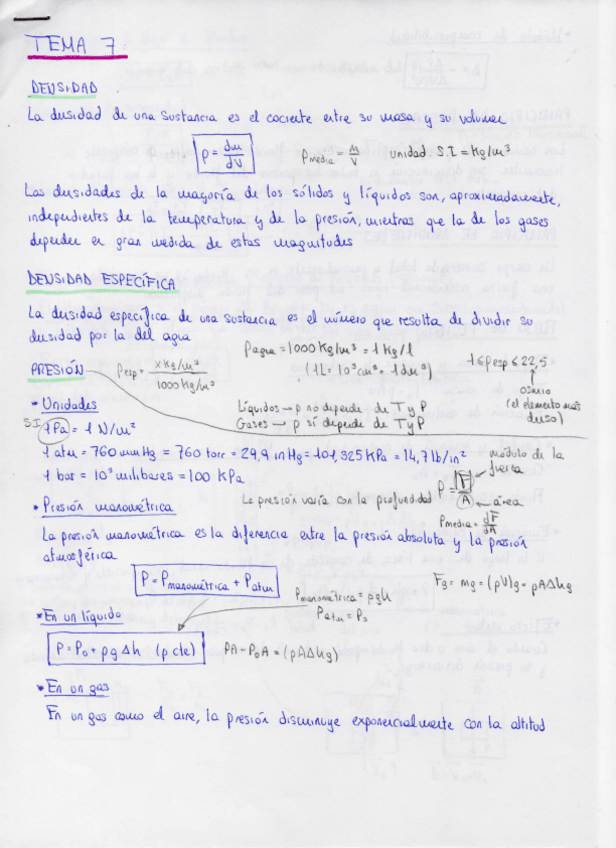 TEMA 7
DENSIDAD
La densidad de una sustancia es el cociente entre su masa y su volumen
ρ = dm/dV
ρmedia = m/V
unidad S.I = Kg/m³
Las densidades de la mayoría de los sólidos y líquidos son, aproximadamente,
independientes de la temperatura y de la presión, mientras que la de los gases
dependen en gran medida de estas magnitudes
DENSIDAD ESPECÍFICA
La densidad específica de una sustancia es el número que resulta de dividir su
densidad por la del agua
ρagua = 1000 Kg/m³ = 1 kg/l
(1L = 10³cm³ = 1dm³)
1 ≤ ρesp ≤ 22,5
osmio
(el elemento más
denso)
ρesp = x Kg/m³ / 1000 Kg/m³
PRESIÓN
* Unidades
Líquidos → ρ no depende de T y P
Gases → ρ sí depende de T y P
S.I
1 Pa = 1 N/m²
1 atm = 760 mm Hg = 760 torr = 29,9 in Hg = 101,325 KPa = 14,7 lb/in²
módulo de la
fuerza
1 bar = 10³ milibares = 100 KPa
P = F/A
área
* Presión manométrica
La presión varía con la profundidad
Pmedia = dF/dA
La presión manométrica es la diferencia entre la presión absoluta y la presión
atmosférica
P = Pmanométrica + Patm
Pmanométrica = ρgh
Patm = P₀
Fg = mg = (ρV)g = ρAΔhg
* En un líquido
P = P₀ + ρgΔh (ρ cte)
PA - P₀A = (ρAΔhg)
* En un gas
En un gas como el aire, la presión disminuye exponencialmente con la altitud